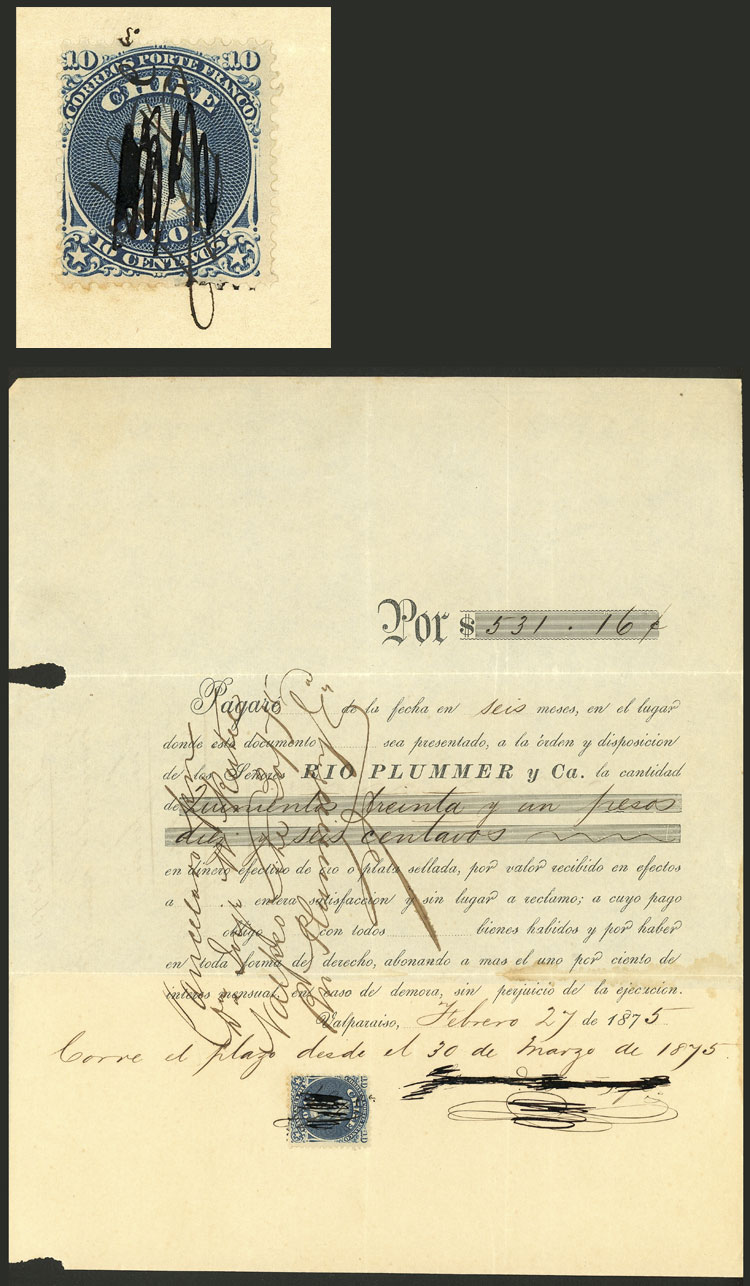 10 10
CORREOS PORTE FRANCO
CHILE
COLON
10 CENTAVOS
Por $ 531.16 ¢
Pagaré de la fecha en seis meses, en el lugar
donde este documento sea presentado, a la órden y disposicion
de los Señores RIO PLUMMER y Ca. la cantidad
de Quinientos treinta y un pesos
diez y seis centavos
en dinero efectivo de oro o plata sellada, por valor recibido en efectos
a entera satisfaccion y sin lugar a reclamo; a cuyo pago
obligo con todos bienes habidos y por haber
en toda forma de derecho, abonando a mas el uno por ciento de
interes mensual, en caso de demora, sin perjuicio de la ejecucion.
Valparaiso, Febrero 27 de 1875
Corre el plazo desde el 30 de Marzo de 1875.
Cancelado por
Plummer
10 10